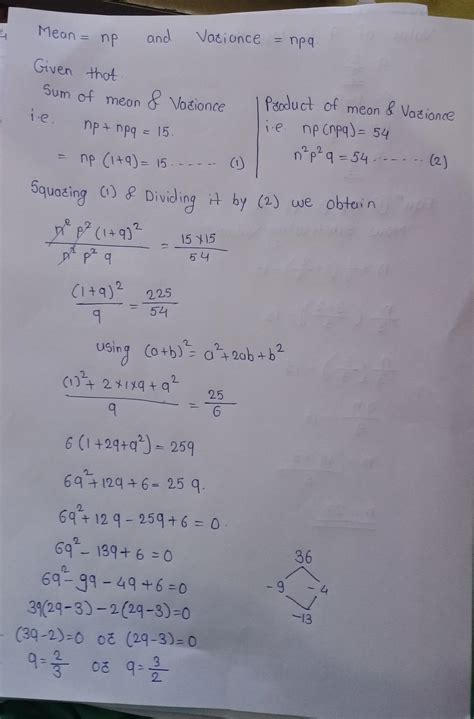 Mean = np and Variance = npq
Given that
Sum of mean & Variance
i.e. np + npq = 15.
= np (1+q) = 15 ...... (1)
Product of mean & Variance
i.e np (npq) = 54
n²p²q = 54 ...... (2)
Squaring (1) & Dividing it by (2) we obtain
n²p²(1+q)² / n²p²q = 15×15 / 54
(1+q)² / q = 225 / 54
using (a+b)² = a²+2ab+b²
(1)² + 2×1×q + q² / q = 25 / 6
6(1+2q+q²) = 25q
6q²+12q+6 = 25q.
6q²+12q-25q+6 = 0.
6q²-13q+6 = 0
6q²-9q-4q+6 = 0
3q(2q-3)-2(2q-3) = 0
(3q-2)=0 or (2q-3)=0
q = 2/3 or q = 3/2
36
-9 -4
-13